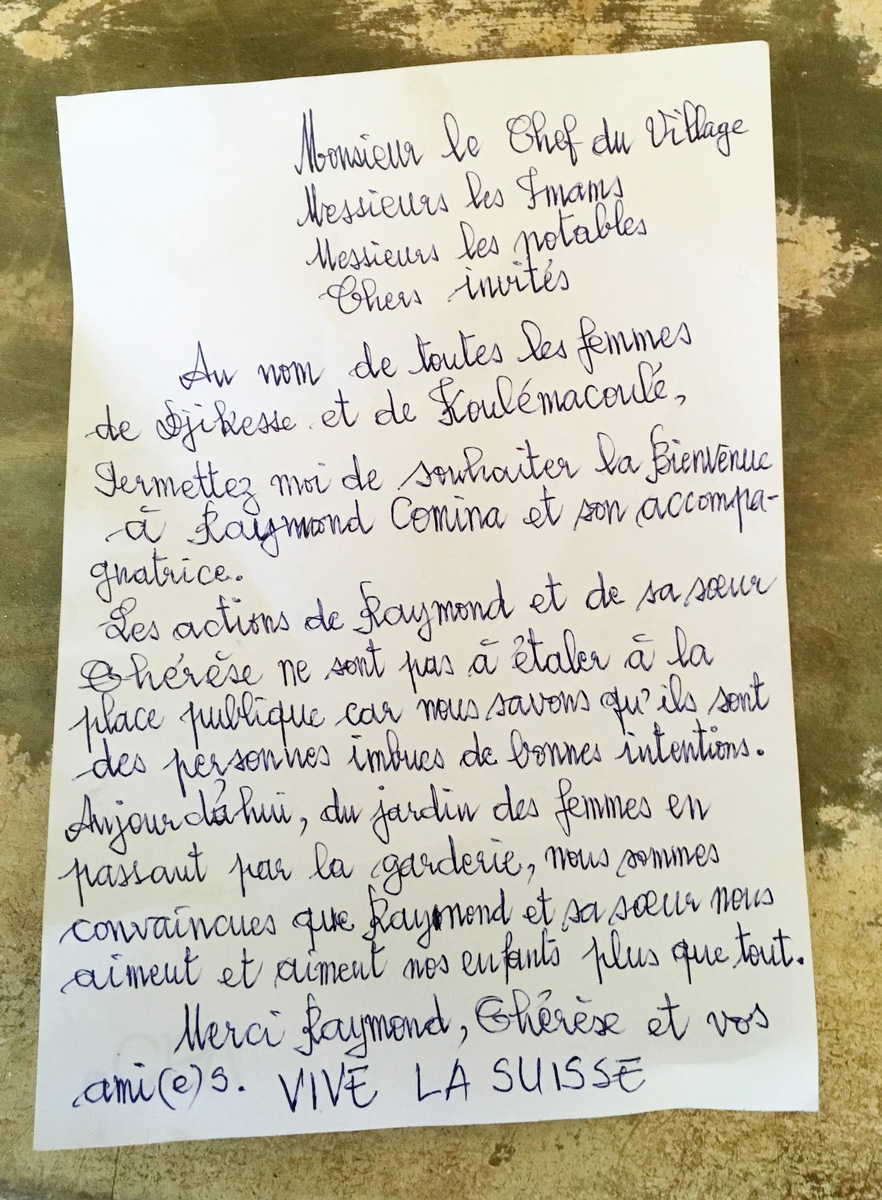 Monsieur le Chef du Village
Messieurs les Imams
Messieurs les notables
Chers invités
Au nom de toutes les femmes
de Djikesse et de Koulémacoulé,
Permettez moi de souhaiter la Bienvenue
à Raymond Comina et son accompa-
gnatrice.
Les actions de Raymond et de sa sœur
Thérèse ne sont pas à étaler à la
place publique car nous savons qu'ils sont
des personnes imbues de bonnes intentions.
Aujourd'hui, du jardin des femmes en
passant par la garderie, nous sommes
convaincues que Raymond et sa sœur nous
aiment et aiment nos enfants plus que tout.
Merci Raymond, Thérèse et vos
ami(e)s. VIVE LA SUISSE